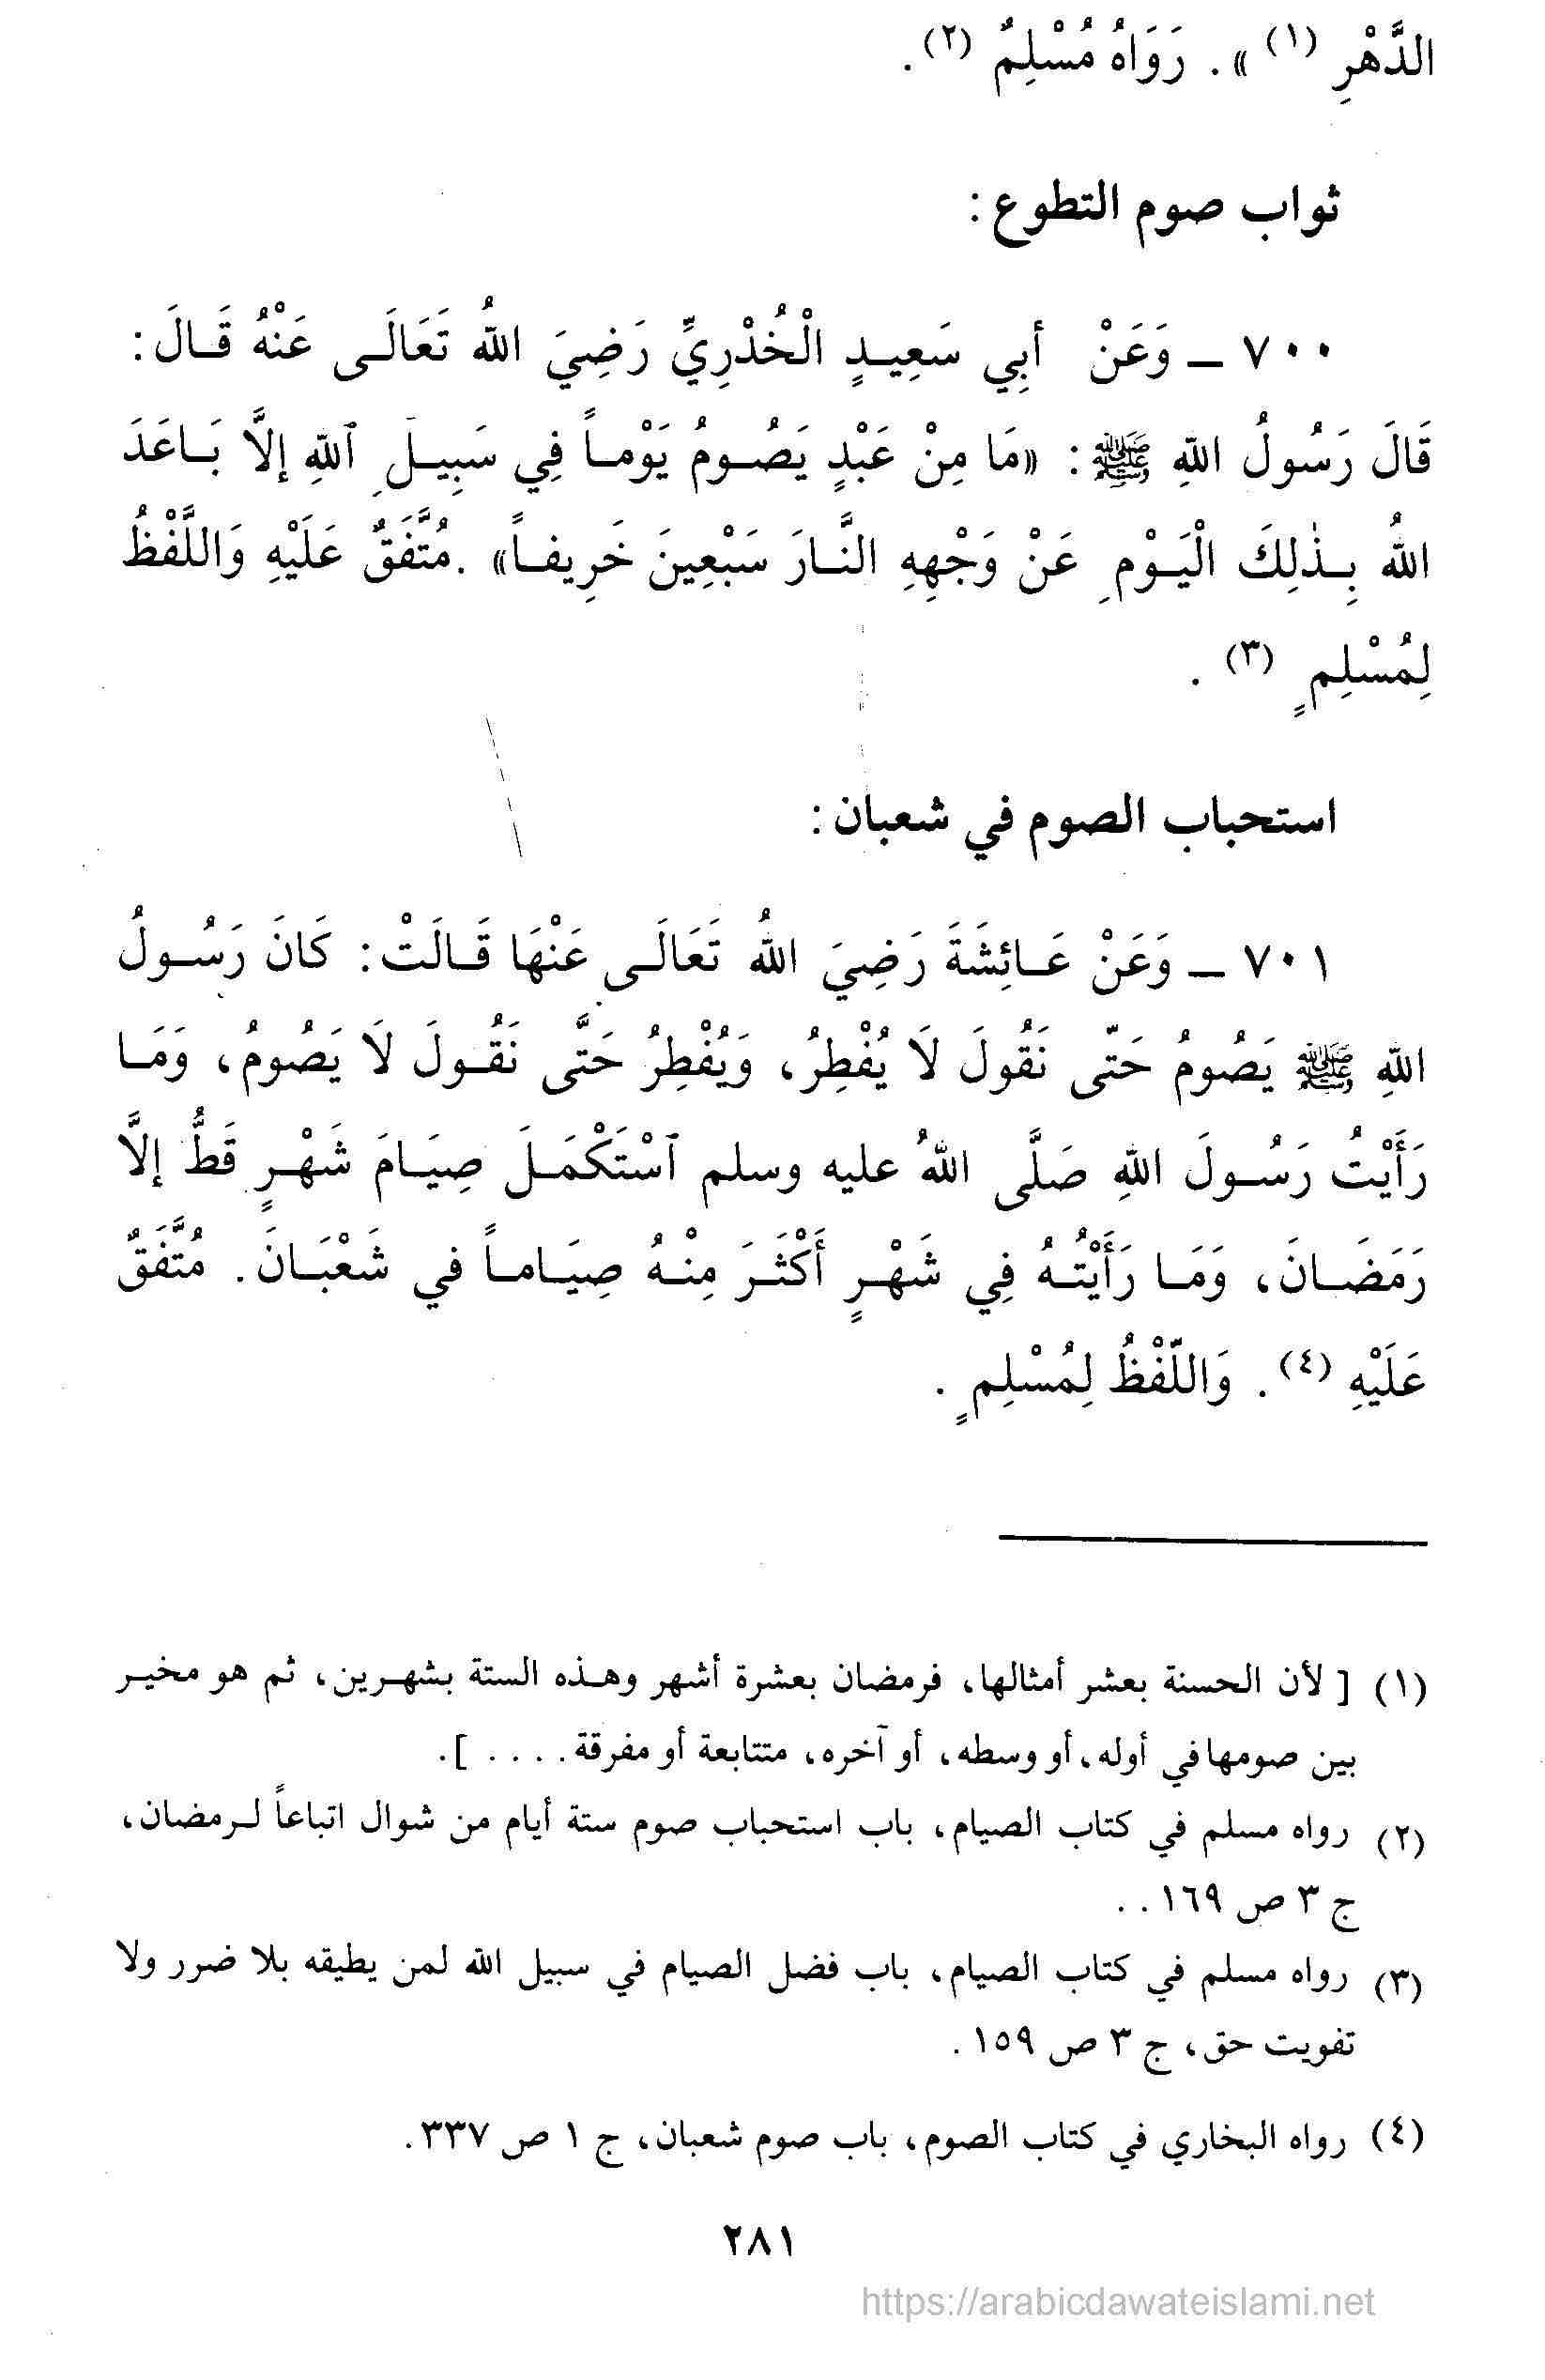 الدَّهْرِ (١) ». رَوَاهُ مُسْلِمٌ (٢).
ثواب صوم التطوع:
٧٠٠ ـ وَعَنْ أبِي سَعِيـدٍ الْخُدْرِيِّ رَضِيَ اللهُ تَعَالَـى عَنْهُ قَـالَ:
قَالَ رَسُولُ اللهِ ﷺ: «مَا مِنْ عَبْدٍ يَصُـومُ يَوْمـاً فِي سَبِيـلِ ٱللهِ إلاَّ بَـاعَدَ
اللهُ بِـذٰلِكَ الْيَـوْمِ عَنْ وَجْهِهِ النَّـارَ سَبْعِينَ خَرِيفـاً» .مُتَّفَقٌ عَلَيْهِ وَاللَّفْظُ
لِمُسْلِمٍ (٣) .
استحباب الصوم في شعبان:
٧٠١ ـ وَعَنْ عَـائِشَةَ رَضِيَ اللهُ تَعَالَـى عَنْهَا قَـالَتْ: كَانَ رَسُـولُ
اللهِ ﷺ يَصُومُ حَتّى نَقُولَ لَا يُفْطِرُ، وَيُفْطِرُ حَتَّى نَقُـولَ لَا يَصُومُ، وَمَـا
رَأَيْتُ رَسُـولَ اللهِ صَلَّى اللهُ عليه وسلم ٱسْتَكْمَـلَ صِيَـامَ شَهْـرٍ قَطُّ إلاَّ
رَمَضَـانَ، وَمَـا رَأَيْتُـهُ فِي شَهْـرٍ أَكْثَـرَ مِنْـهُ صِيَـامـاً في شَعْبَـانَ. مُتَّفَقٌ
عَلَيْهِ (٤). وَاللّفْظُ لِمُسْلِمٍ .
(١) [ لأن الحسنة بعشر أمثالها، فرمضان بعشرة أشهر وهـذه الستة بشهـرين، ثم هو مخيـر
بين صومها في أوله، أو وسطه، أو آخره، متتابعة أو مفرقة. . . . ].
(٢) رواه مسلم في كتاب الصيام، باب استحباب صوم ستة أيام من شوال اتباعاً لـرمضان،
ج ٣ ص ١٦٩ . .
(٣) رواه مسلم في كتاب الصيام، باب فضل الصيام في سبيل الله لمن يطيقه بلا ضرر ولا
تفويت حق، ج ٣ ص ١٥٩ .
(٤) رواه البخاري في كتاب الصوم، باب صوم شعبان، ج ١ ص ٣٣٧.
٢٨١
https://arabicdawateislami.net